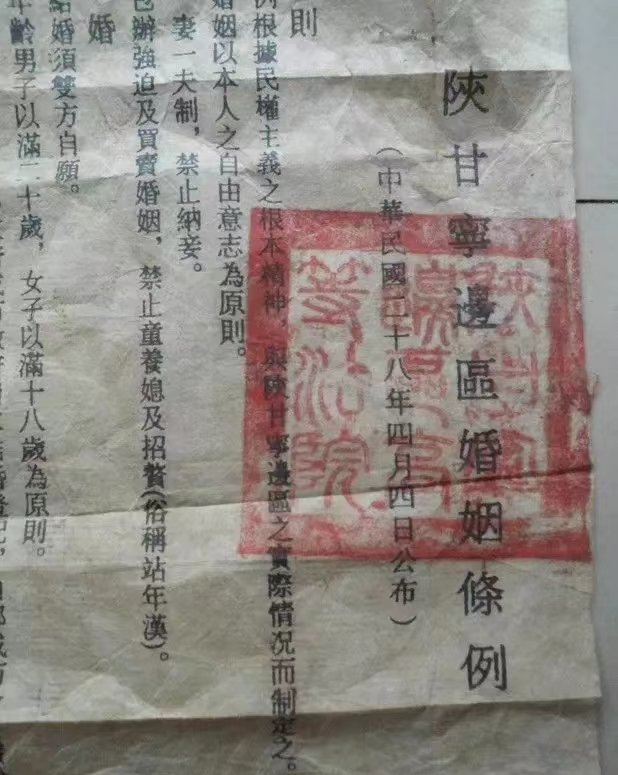 陝甘寧邊區婚姻條例
(中華民國二十八年四月四日公布)
陝甘寧
邊區高
等法院
則
例根據民權主義之根本精神，與陝甘寧邊區之實際情况而制定之。
婚姻以本人之自由意志為原則。
妻一夫制，禁止納妾。
包辦強迫及買賣婚姻，禁止童養媳及招贅(俗稱站年漢)。
婚
結婚須雙方自願。
年齡男子以滿二十歲，女子以滿十八歲為原則。
結婚登記，